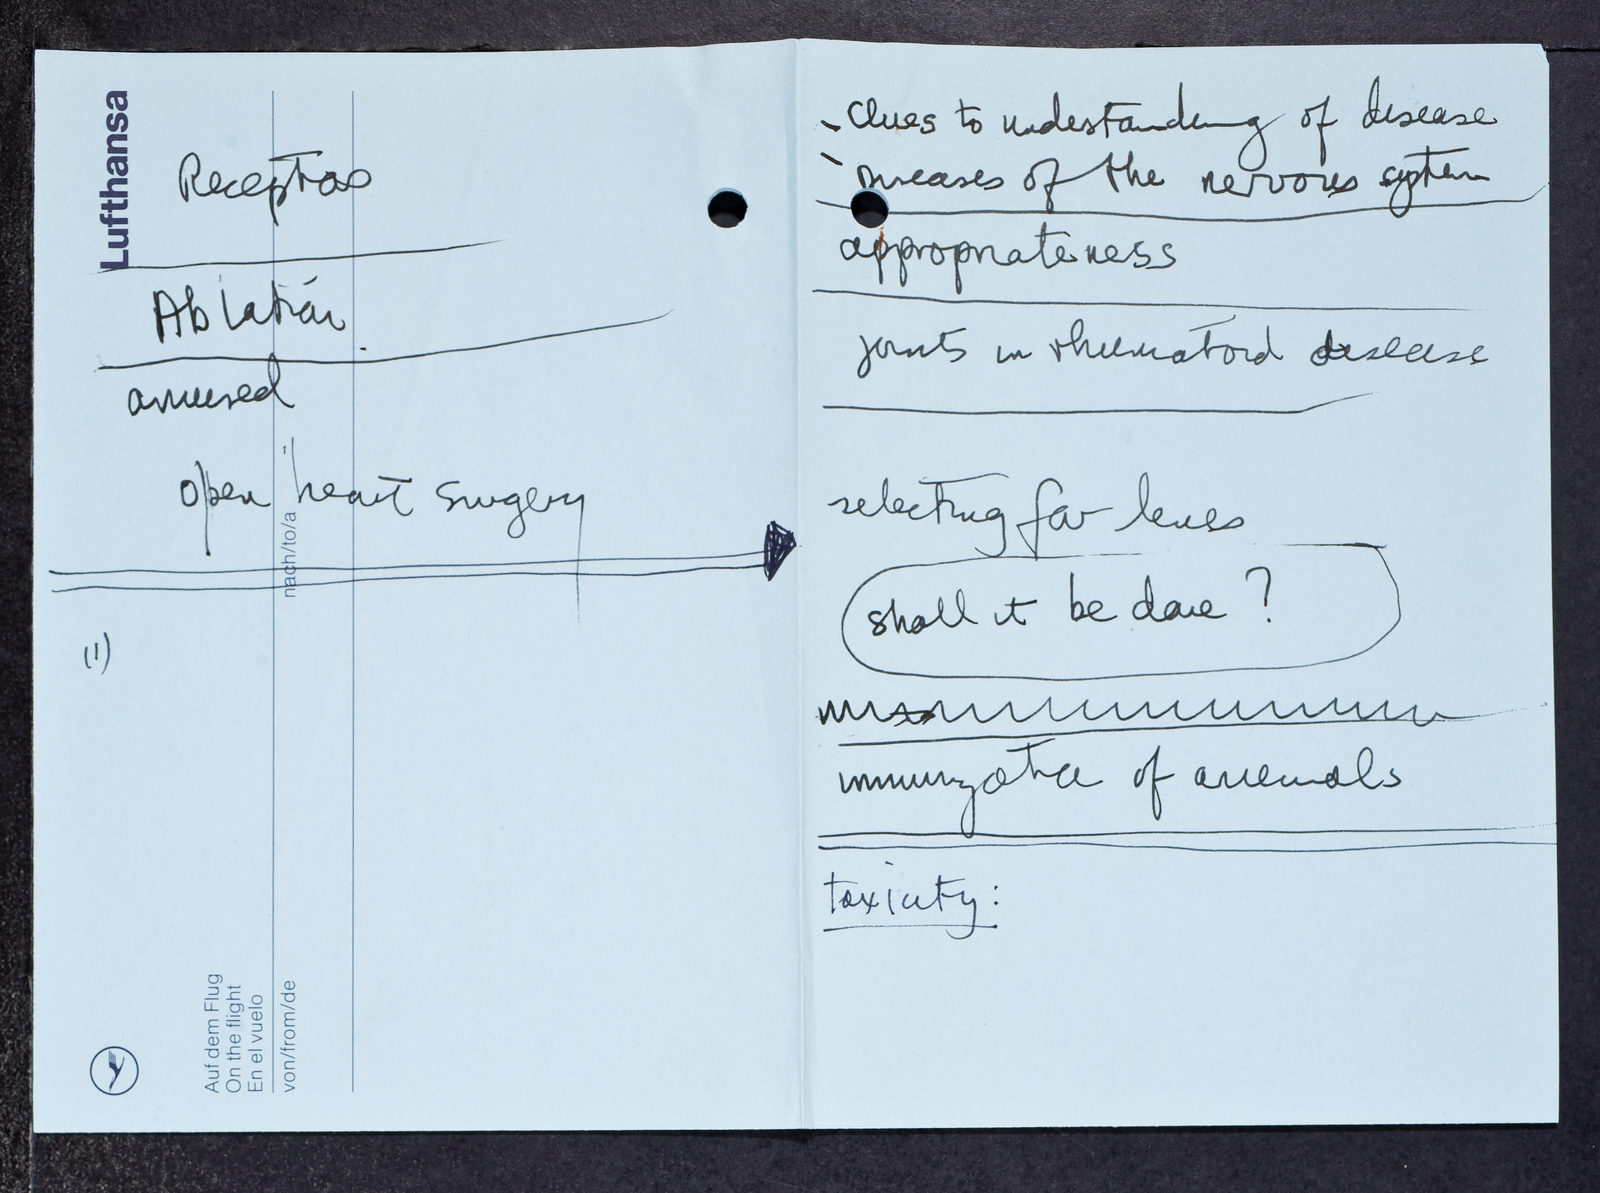 Lufthansa
Receptors
Ablation
amused
open heart surgery
nach/to/a
(1)
Auf dem Flug
On the flight
En el vuelo
von/from/de
- clues to understanding of disease
- diseases of the nervous system
appropriateness
joints in rheumatoid disease
selecting for
shall it be done?
of animals
toxicity: